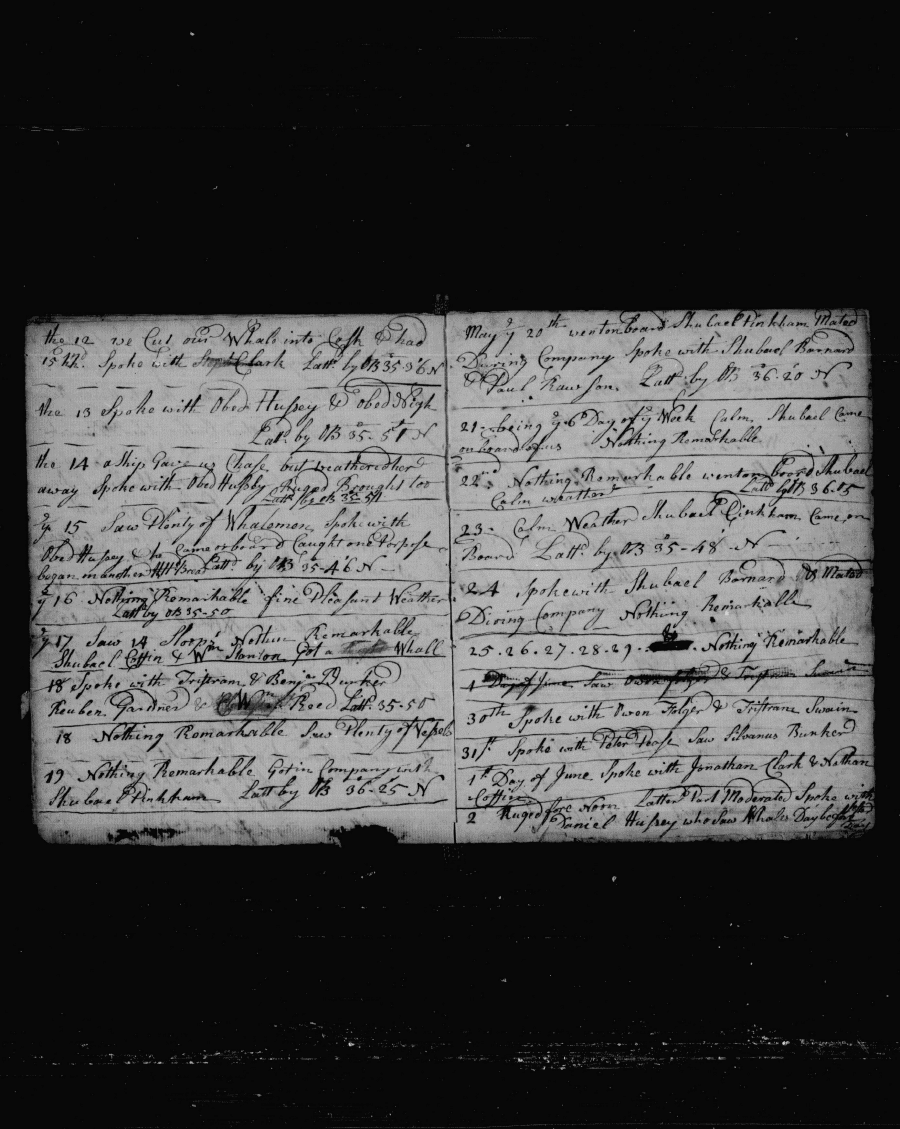 the 12 we Cut our Whale into Cash & had
15 hhd. Spoke with Clark Latt. by OB 35-36 N
the 13 Spoke with Obed Hussey & obed
Latt. by OB 35-51 N
the 14 a Ship Gave us Chase but weathered her
away Spoke with Obed Hussby Ruged Brought too
Latt by OB 35-51
ye 15 Saw Plenty of Whalemen Spoke with
Obed Hussey & he Came on board Caught one Porpose
began another Latt. by OB 35-46 N
ye 16 Nothing Remarkable fine Pleasant Weather
Latt by OB 35-50
ye 17 Saw 14 Sloops Nothing Remarkable
Shubael Coffin & Wm Stanton Got a Whall
18 Spoke with Tristram & Benja. Bunker
Reuben Gardner & Reed Latt. 35-50
18 Nothing Remarkable Saw Plenty of Vessels
19 Nothing Remarkable Got in Company with
Shubael Pinkham Latt by OB 36-25 N
May ye 20th went on board Shubael Pinkham Mated
During Company Spoke with Shubael Barnard
& Paul Rawson Latt. by OB 36-20 N
21- being ye 6 Day of ye Week Calm Shubael Came
on board of us Nothing Remarkable
22nd Nothing Remarkable went on board Shubael
Calm weather Latt by OB 36-15
23- Calm Weather Shubael Pinkham Came on
Board Latt. by OB 35-48 N
24 Spoke with Shubael Barnard & Mated
During Company Nothing Remarkable
25-26-27-28-29- Nothing Remarkable
1 Day of June Saw Owen Folger & Tristram Swain
30th Spoke with Owen Folger & Tristram Swain
31st Spoke with Peter Pease Saw Silvanus Bunker
1st Day of June Spoke with Jonathan Clark & Nathan
Coffin
2 Ruged fore Noon Latter Part Moderate Spoke with
Daniel Hussey who Saw Whales Day before